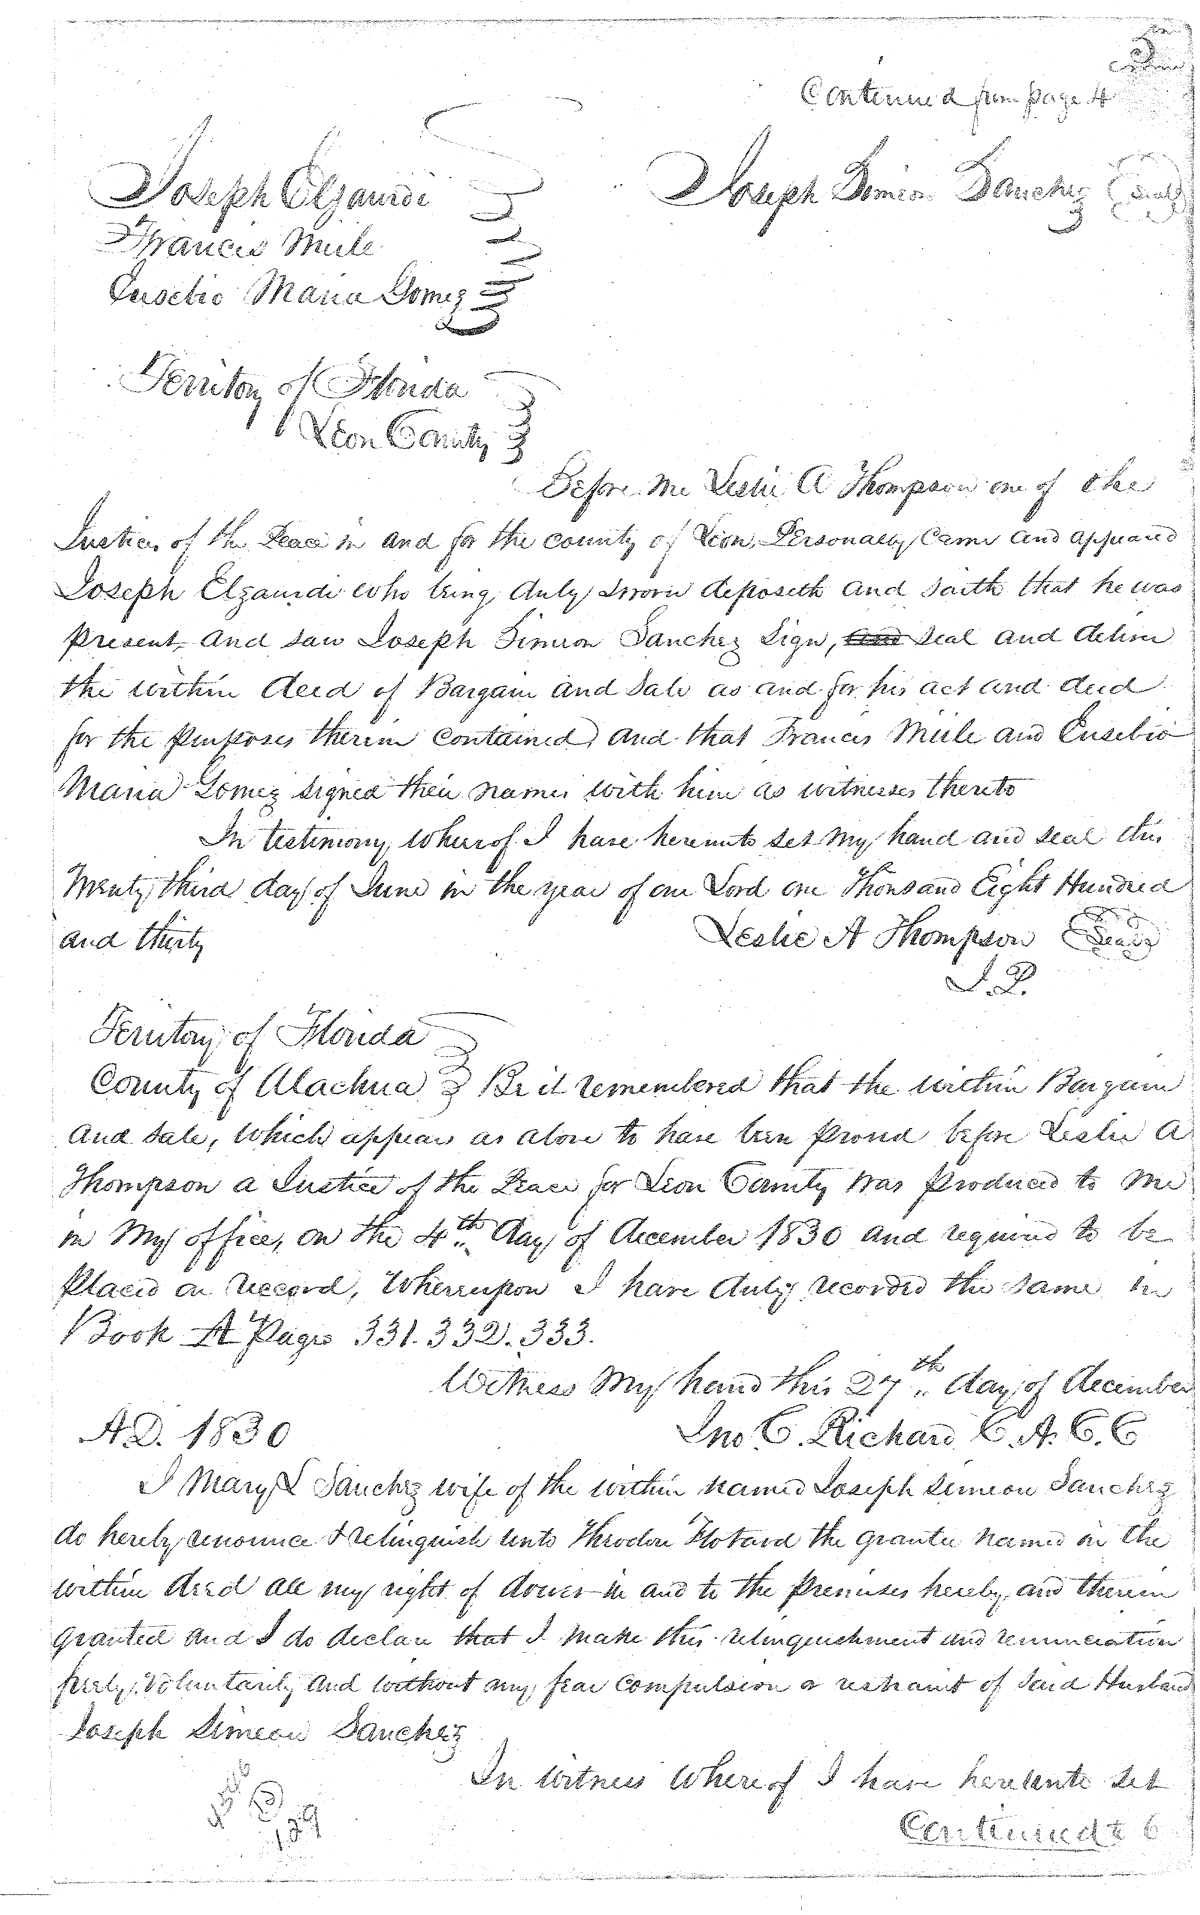 Continued from page 4
Joseph Elzaurdi Joseph Simeon Sanchez (Seal)
Francis Mule
Eusebio Maria Gomez
Territory of Florida
Leon County
Before me Leslie A Thompson one of the
Justices of the Peace in and for the county of Leon, Personally Came and appeared
Joseph Elzaurdi who being duly sworn deposeth and saith that he was
present, and saw Joseph Simeon Sanchez Sign, and seal and deliver
the within deed of Bargain and Sale as and for his act and deed
for the purposes therein contained, and that Francis Mule and Eusebio
Maria Gomez signed their names with him as witnesses thereto
In testimony Whereof I have hereunto set my hand and seal this
Twenty third day of June in the year of our Lord one Thousand Eight Hundred
and thirty Leslie A Thompson (Seal)
J. P.
Territory of Florida
County of Alachua Be it remembered that the within Bargain
and sale, which appears as above to have been proved before Leslie A
Thompson a Justice of the Peace for Leon County was produced to me
in My office, on the 4th day of December 1830 and required to be
placed on record, Whereupon I have duly recorded the same in
Book A Pages 331. 332. 333.
Witness My hand this 27th day of December
A.D. 1830 Jno C. Richard C. A. C. C
I Mary L Sanchez wife of the within named Joseph Simeon Sanchez
do hereby renounce & relinquish unto Theodore Flotard the grantee named in the
within deed all my right of dower in and to the premises hereby and therein
granted and I do declare that I make this relinquishment and renunciation
freely, voluntarily and without any fear compulsion or restraint of said Husband
Joseph Simeon Sanchez
In witness whereof I have hereunto set
Continued to 6